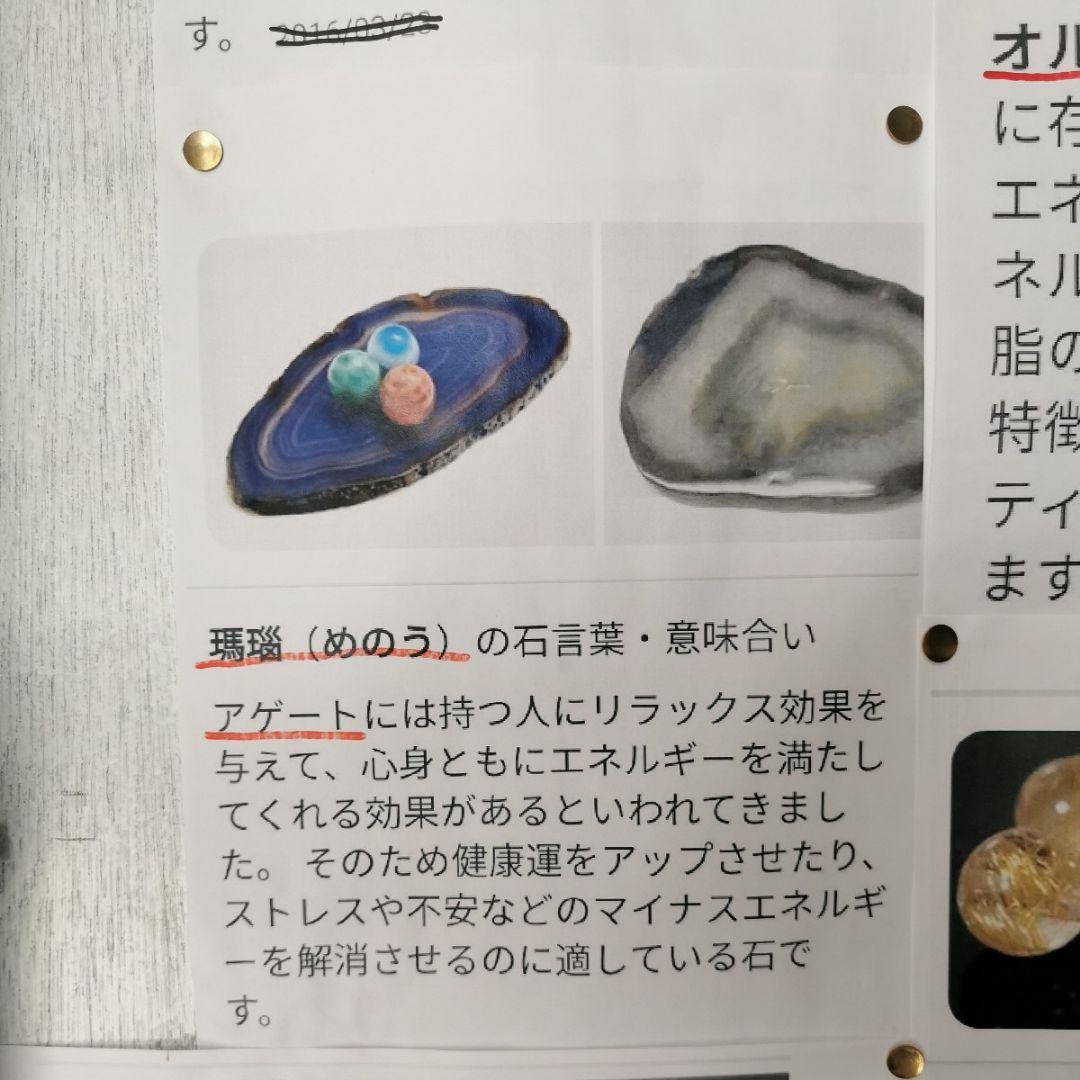 す。 2016/03/23
瑪瑙（めのう）の石言葉・意味合い
アゲートには持つ人にリラックス効果を
与えて、心身ともにエネルギーを満たし
てくれる効果があるといわれてきまし
た。 そのため健康運をアップさせたり、
ストレスや不安などのマイナスエネルギ
ーを解消させるのに適している石で
す。
オル
に存
エネ
ネル
脂の
特徴
ティ
ます